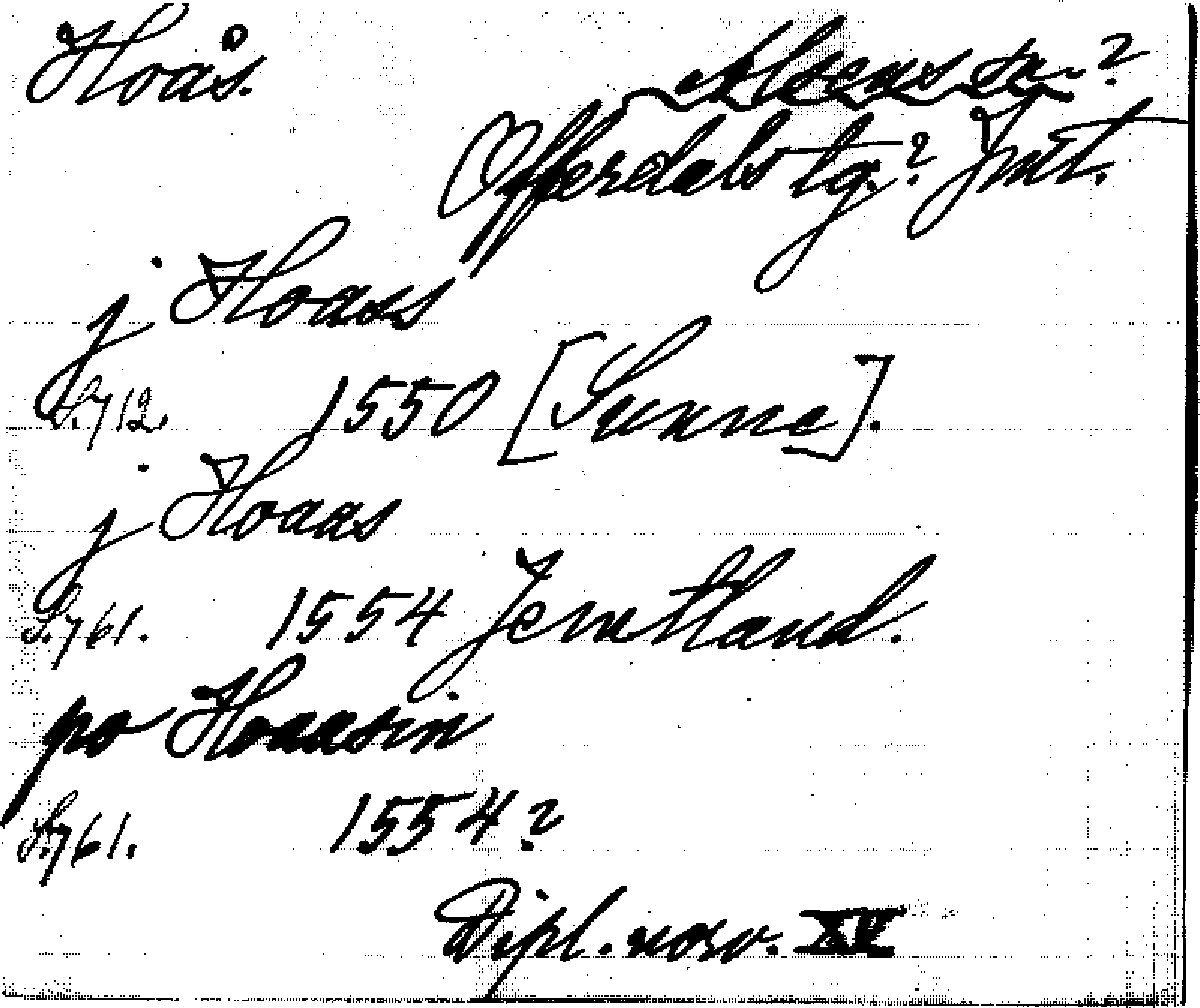 Hoås.
Alsens sn.?
Offerdals tg.? Jmt.
j Hoass
S. 712. 1550 [Sunne].
j Hoaas
S. 761. 1554 Jemtland.
po Hoaasin
S. 761. 1554?
Dipl. norv. XV